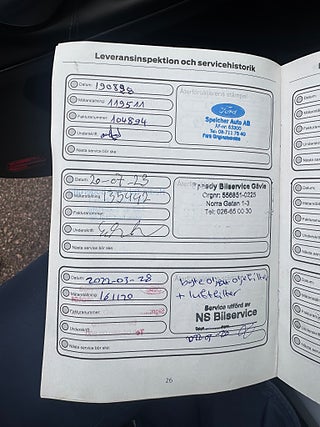 Leveransinspektion och servicehistorik
Datum: 190898
Återförsäljarens stämpel:
Mätarställning: 119511
Ford
Fakturanummer: 104894
Speicher Auto AB
Underskrift:
Tel: 08-711 75 40
Nästa service bör ske:
Datum: 20-07-23
Speedy Bilservice Gävle
Mätarställning: 135442
Orgnr: 556851-0225
Norra Gatan 1-3
Fakturanummer:
Tel: 026-65 00 30
Underskrift:
Nästa service bör ske:
Datum: 2022-03-28
byte olja o oljefilter
Mätarställning: 161170
+ luftfilter
Fakturanummer:
Service utförd av
NS Bilservice
Underskrift:
Nästa service bör ske:
26